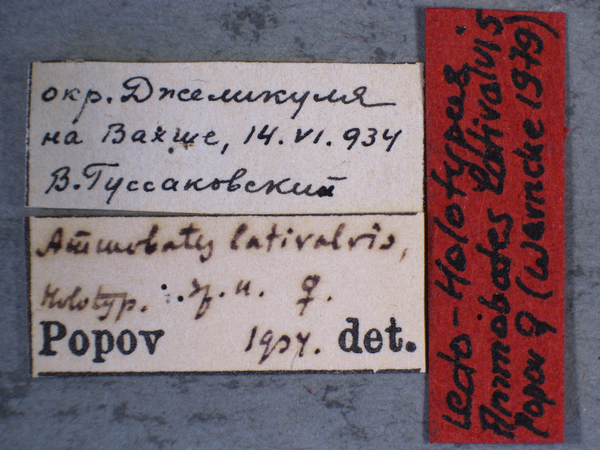 окр. Джеликуля
на Вахше, 14.VI.934
В. Гуссаковский
Ammobates lativalvis,
Holotyp. sp. n. ♀.
Popov 1934. det.
Lecto-Holotypus
Ammobates lativalvis
Popov ♀ (Warncke 1979)